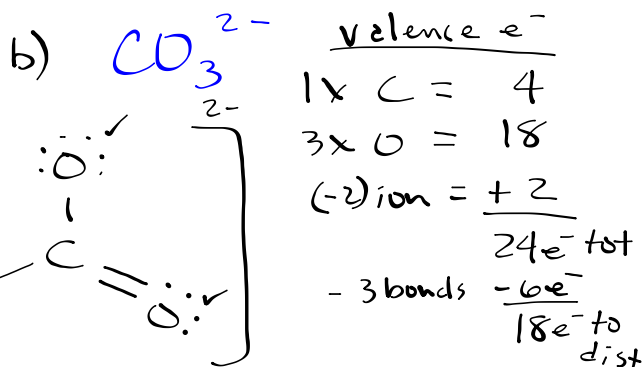 b) CO₃²⁻
valence e⁻
1x C = 4
3x O = 18
(-2) ion = + 2
24e⁻ tot
- 3 bonds - 6e⁻
18e⁻ to
dist
2-
:O:
C
O: